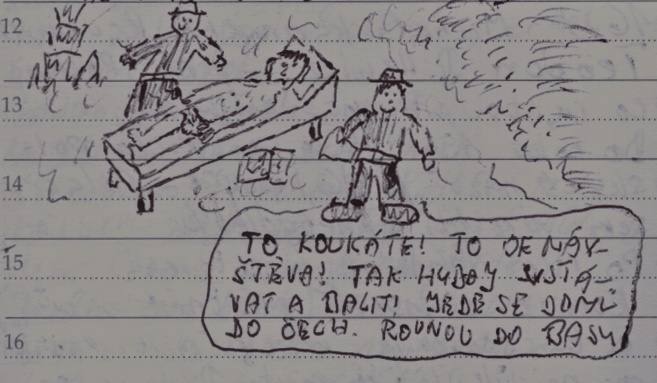 12
13
14
15
16
TO KOUKÁTE! TO JE NÁV-
ŠTĚVA! TAK HYBAJ VSTÁ-
VAT A BALIT! JEDE SE DOMŮ
DO ČECH. ROVNOU DO BASY